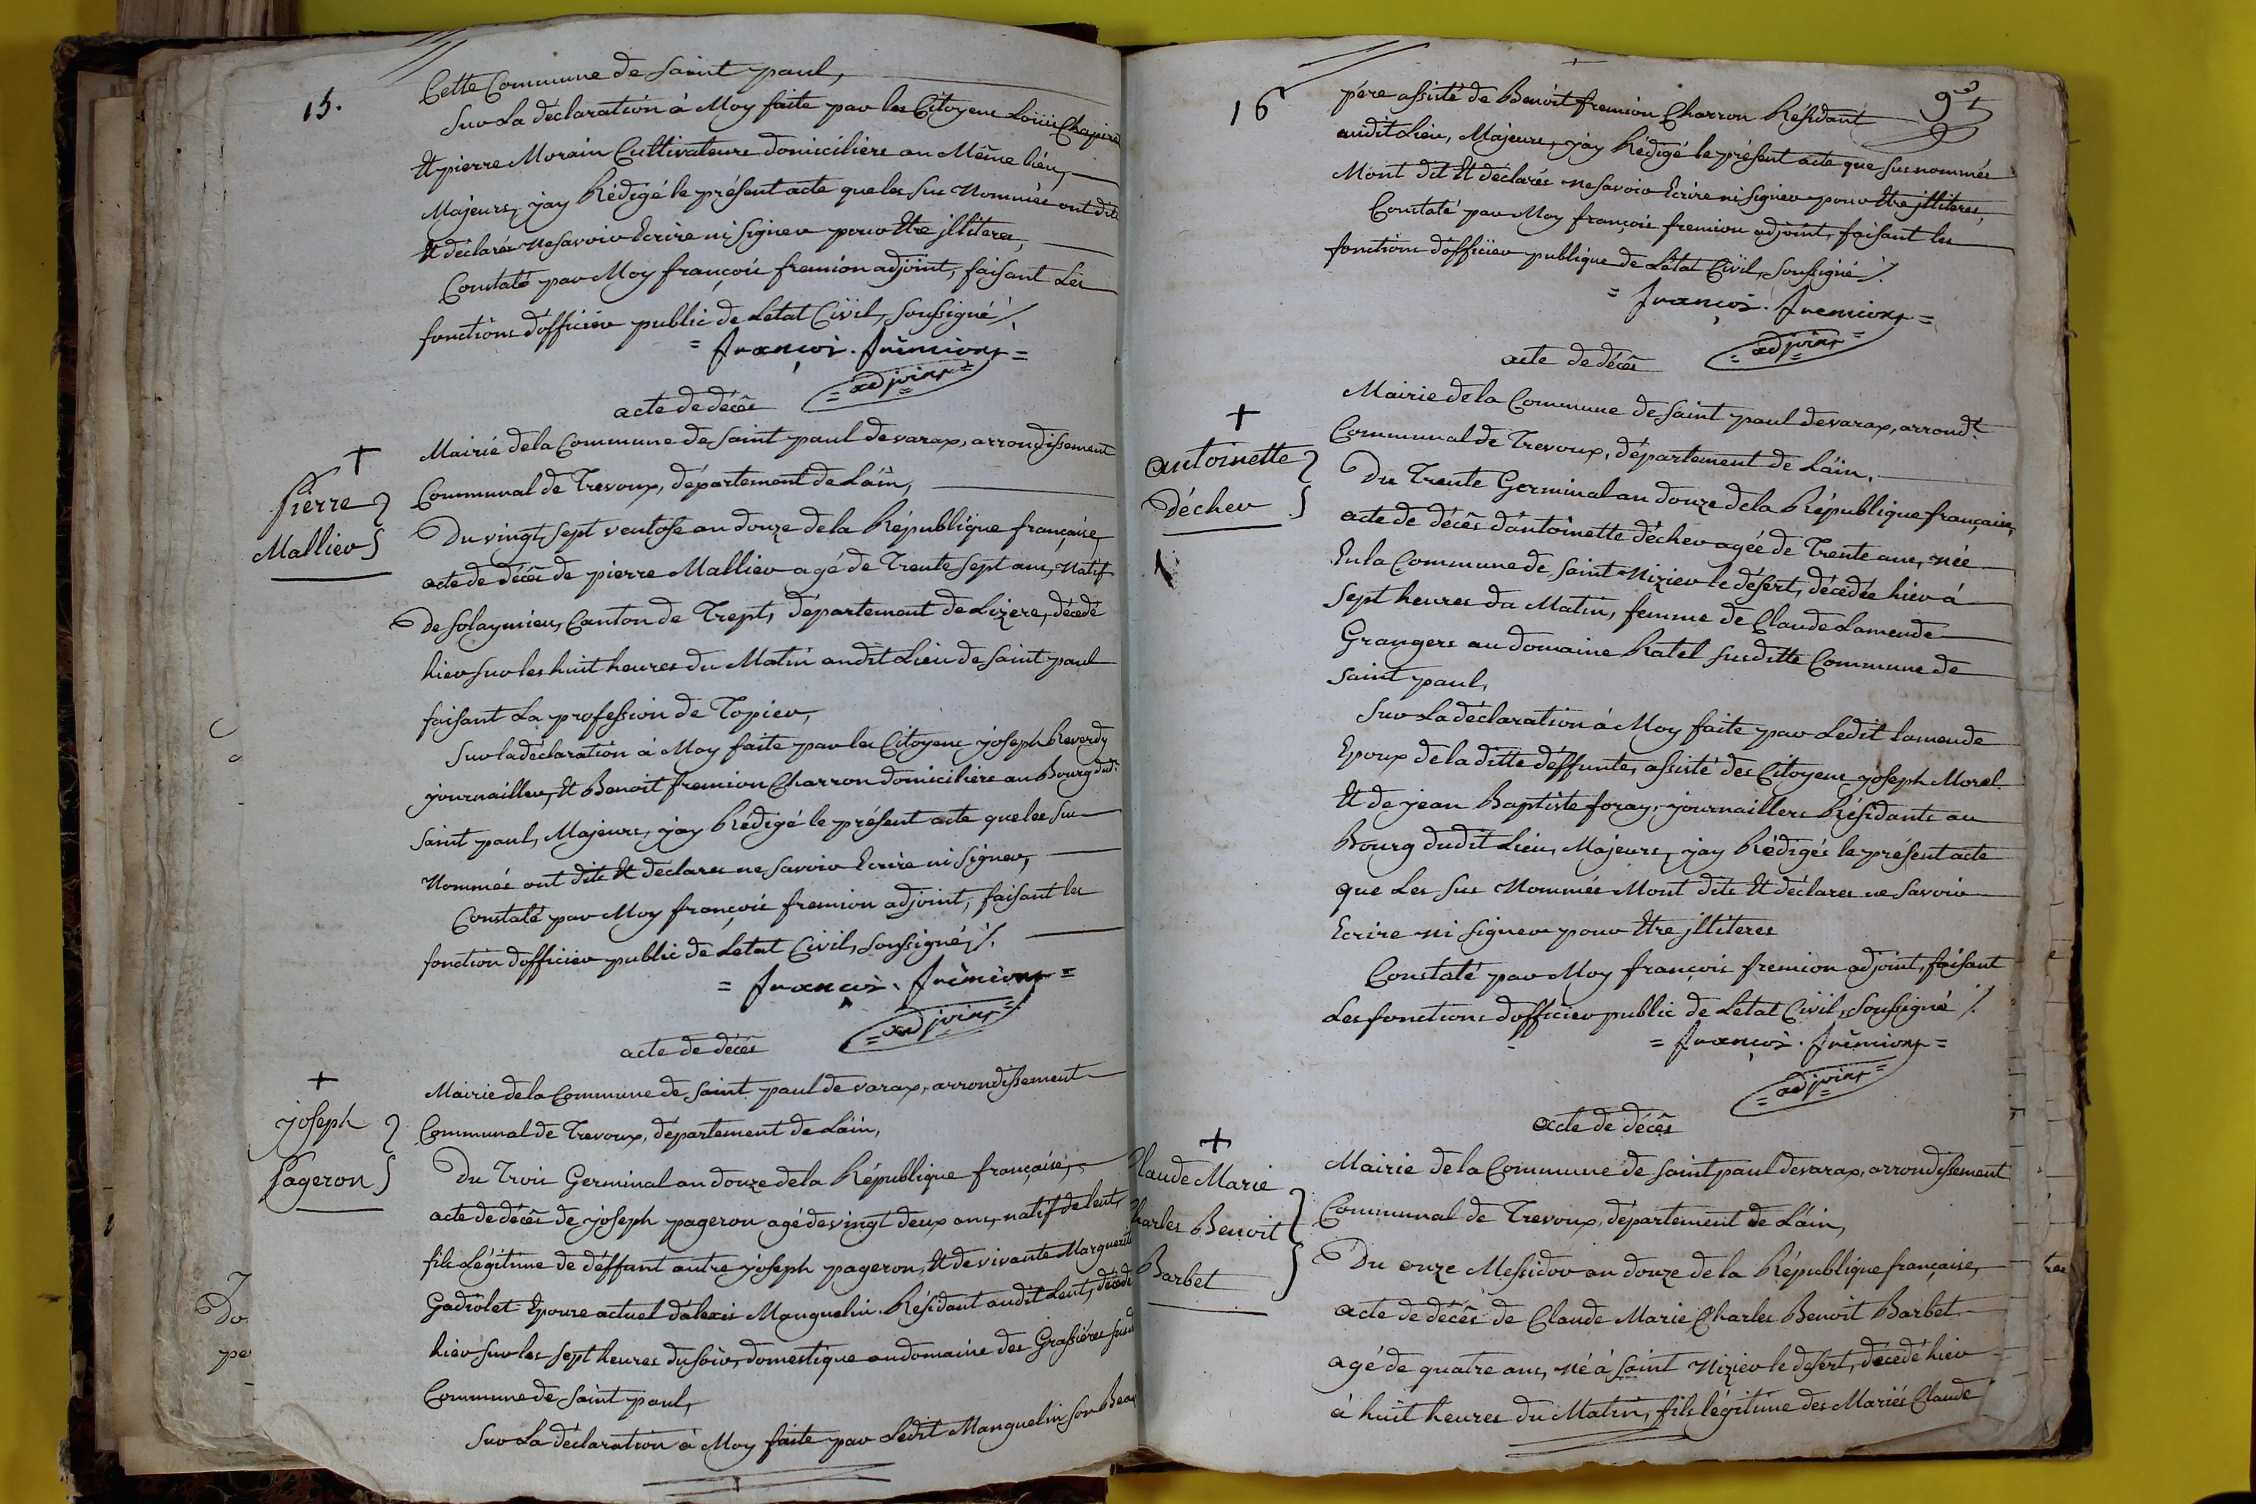 15.
Cette Commune de Saint paul,
Sur La déclaration à Moy faite par les Citoyens Loüis Chapiro
Et pierre Morain Cultivateurs domiciliers au Même liéu,
Majeurs, jay Rédigé le présent acte que les sus Nommés ont dits
Et déclarés Ne savoir Ecrire ni signer pour Etre jlliteres,
Constaté par Moy françois fremion adjoint, faisant Les
fonctions dofficier public de Letat Civil, soussigné ⁒
= françois . frémions =
= adjoint =
acte de décés
+
Pierre
Mallier
Mairié dela Commune de Saint paul de varax, arrondissement
Communal de Trevoux, département de Lain,
Du vingt sept ventose an douze dela République française,
acte de décés de pierre Mallier agé de Trente sept ans, Natif
De solaymieu, Canton de Trept, département de Lizere, décédé
hier sur les huit heures du Matin audit Lieu de saint paul
faisant La profession de Topier,
Sur la déclaration à Moy faite par les Citoyens joseph Reverdy
journaillier, Et Benoit fremion Charron domiciliers au Bourg dudt
saint paul, Majeurs, jay Rédigé le présent acte que les sus
Nommés ont dits Et declares ne savoir Ecrire ni signer,
Constaté par Moy françois fremion adjoint, faisant les
fonction dofficier public de Letat Civil, soussigné, ⁒
= françois . frémions =
= adjoint =
acte de décés
+
joseph
Pageron
Mairie dela Commune de Saint paul de varax, arrondissement
Communal de Trevoux, département de Lain,
Du Trois Germinal an douze dela République française,
acte de décés de joseph pageron agé de vingt deux ans, natif de lent,
fils Légitime de déffunt autre joseph pageron, Et de vivante Marguerite
Gadiolet Epouse actuel dalexis Manguelin Résidant audit Lent, décédé
hier sur les sept heures du soir, domestique au domaine des Grassiéres susd
Commune de Saint paul,
Sur La déclaration à Moy faite par Ledit Manguelin son Beau
16
9
pére assisté de Benoit fremion Charron Résidant
audit Lieu, Majeurs, jay Rédigé le présent acte que sus nommés
Mont dit Et déclarés ne savoir Ecrire ni signer pour Etre jlliteres,
Constaté par Moy françois fremion adjoint, faisant les
fonctions d'officier publique de Létat Civil, soussigné ⁒
= françois . fremions =
= adjoint =
acte de décés
+
antoinette
Décher
Mairie dela Commune de Saint paul de varax, arrondt
Communal de Trevoux, département de Láin,
Du Trente Germinal an douze dela République française,
acte de décés d'antoinette décher agée de Trente ans, née
En la Commune de saint Nizier le désert, décédée hier à
sept heures du Matin, femme de Claude Lamende
Grangers au domaine Ratel susditte Commune de
saint paul,
Sur La déclaration à Moy faite par Ledit Lamende
Epoux de la ditte déffunte, assisté des Citoyens joseph Morel
Et de jean Baptiste foray, journailliers Résidants au
Bourg dudit Lieu, Majeurs, jay Rédigés le présent acte
que Les sus Nommés Mont dits Et déclares ne savoir
Ecrire ni signer pour Etre jlliteres
Constaté par Moy françois fremion adjoint, faisant
Les fonctions dofficier public de Létat Civil, soussigné ⁒
= françois . frémions =
= adjoint =
acte de décés
+
Claude Marie
Charles Benoit
Barbet
Mairie dela Commune de saint paul de varax, arrondissement
Communal de Trevoux, département de Láin,
Du onze Messidor an douze de la République française,
acte de décés de Claude Marie Charles Benoit Barbet
agé de quatre ans, né à saint Nizier le desert, décédé hier
à huit heures du Matin, fils légitime des Mariés Claude